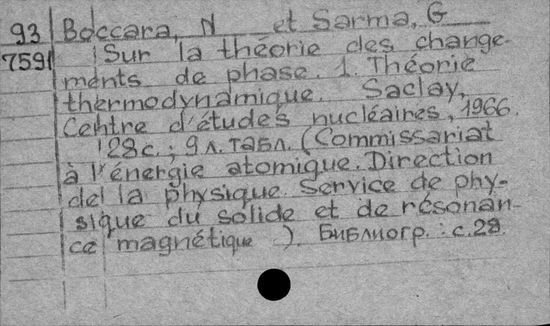 93 Boccara, N et Sarma, G
7591 Sur la théorie des change-
ments de phase. 1. Théorie
thermodynamique. Saclay,
Centre d'études nucléaires, 1966.
28 с.; 9 л. табл. (Commissariat
à l'énergie atomique. Direction
de la physique. Service de phy-
sique du solide et de résonan-
ce magnétique ). Библиогр.: с. 28.